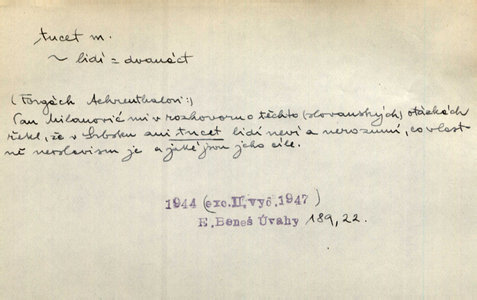 tucet m.
~ lidí = dvanáct
(Forgách Aehrenthalovi:)
Pan Milanovič mi v rozhovoru o těchto (slovanských) otázkách
řekl, že v Srbsku ani tucet lidí neví a nerozumí, co vlast-
ně neoslavism je a jaké jsou jeho cíle.
1944 (exc. II. vyd. 1947)
E. Beneš Úvahy 189, 22.